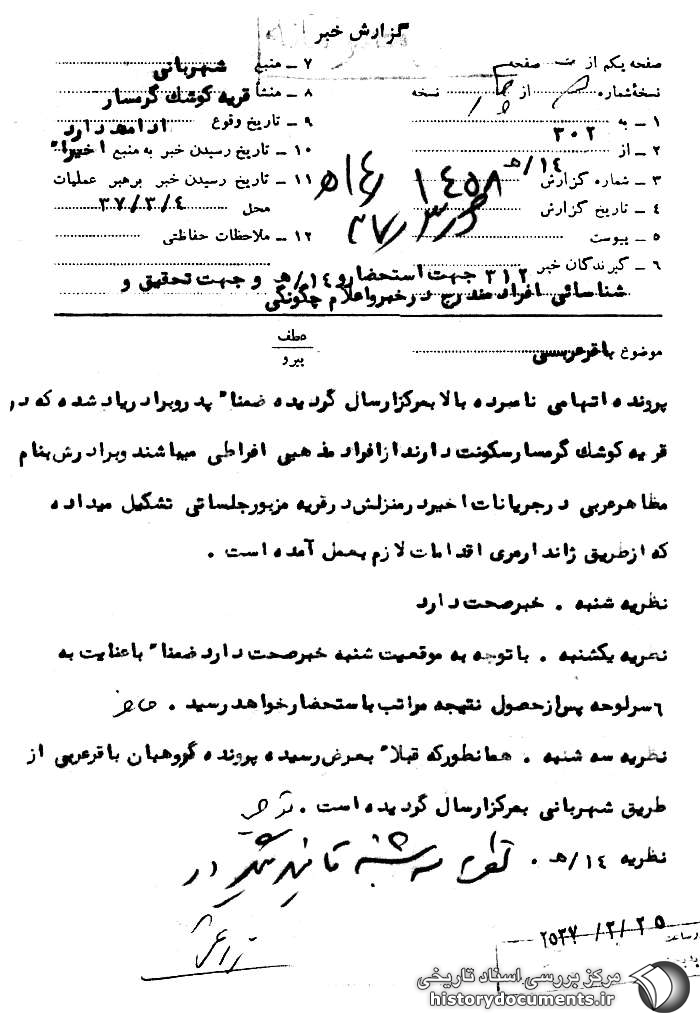 گزارش خبر
صفحه یکم از صفحه
نسخهٔ شماره از نسخه
۱ ـ به ۳۰۲
۲ ـ از ۱۴/ه‍
۳ ـ شماره گزارش
۴ ـ تاریخ گزارش
۵ ـ پیوست
۶ ـ گیرندگان خبر ۳۱۲ جهت استحضار و ۱۴/ه‍ و جهت تحقیق و
شناسائی افراد مندرج در خبر و اعلام چگونگی
۷ ـ منبع شهربانی
۸ ـ منشأ قریه کوشك گرمسار
۹ ـ تاریخ وقوع ادامه دارد
۱۰ ـ تاریخ رسیدن خبر به منبع اخیراً
۱۱ ـ تاریخ رسیدن خبر برهبر عملیات
محل ۳۷/۳/۴
۱۲ ـ ملاحظات حفاظتی
موضوع باقرعربی
عطف
پیرو
پرونده اتهامی نامبرده بالا بمرکز ارسال گردیده ضمناً پدر و برادر یاد شده که در
قریه کوشك گرمسار سکونت دارند از افراد مذهبی افراطی میباشند و برادرش بنام
مظاهرعربی در جریانات اخیر در منزلش در قریه مزبور جلساتی تشکیل میداده
که از طریق ژاندارمری اقدامات لازم بعمل آمده است .
نظریه شنبه . خبر صحت دارد
نظریه یکشنبه . با توجه به موقعیت شنبه خبر صحت دارد ضمناً با عنایت به
۶ سرلوحه پس از حصول نتیجه مراتب باستحضار خواهد رسید .
نظریه سه شنبه . همانطورکه قبلاً بعرض رسیده پرونده گروهبان باقرعربی از
طریق شهربانی بمرکز ارسال گردیده است .
نظریه ۱۴/ه‍ . نظریه سه شنبه تأیید میگردد
۲۵۳۷/۳/۲۵
مرکز بررسی اسناد تاریخی
historydocuments.ir